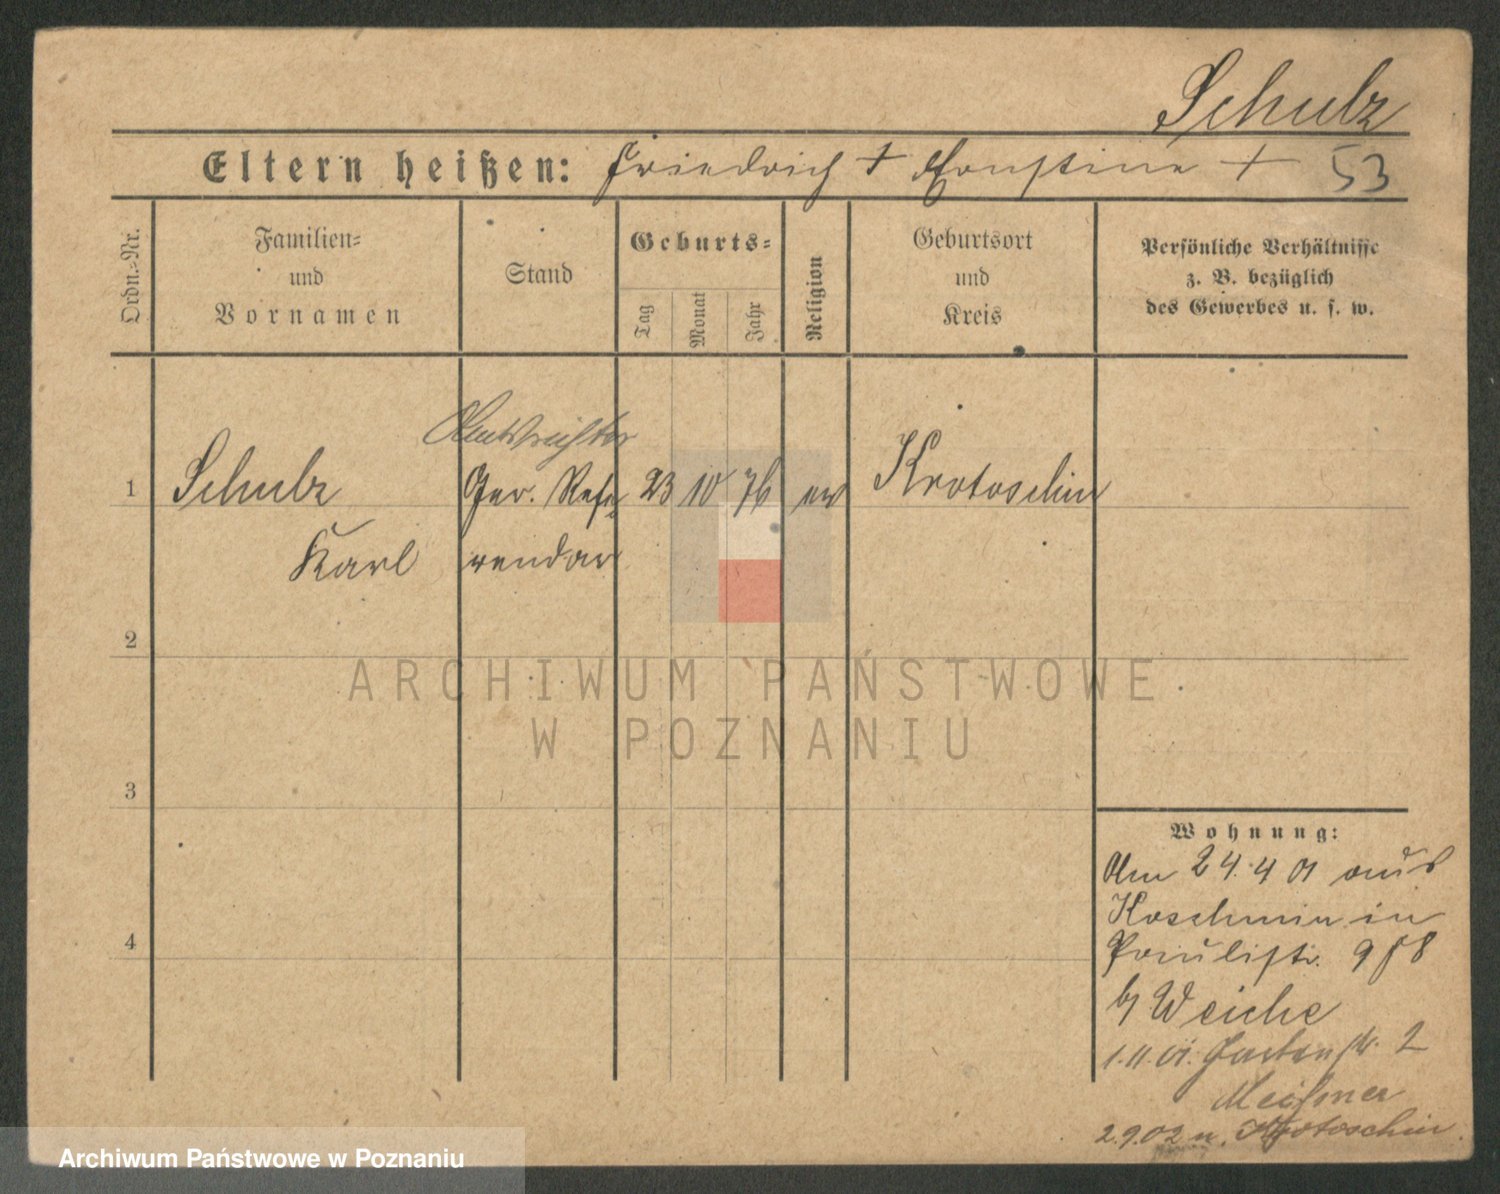 Schulz
Eltern heißen: Friedrich + Ernstine + 53
Ordn.-Nr.
Familien-
und
Vornamen
Stand
Geburts-
Tag
Monat
Jahr
Religion
Geburtsort
und
Kreis
Persönliche Verhältnisse
z. B. bezüglich
des Gewerbes u. s. w.
Amtsrichter
1 Schulz Ger. Refe 23 10 76 ev Krotoschin
Karl rendar
2
ARCHIWUM PAŃSTWOWE
W POZNANIU
3
Wohnung:
Am 24.4 01 aus
Koschmin in
Paulistr. 9
b/ Weiche
1.11.01. Gartenstr. 2
Meißner
2.9.02 n. Krotoschin
4
Archiwum Państwowe w Poznaniu